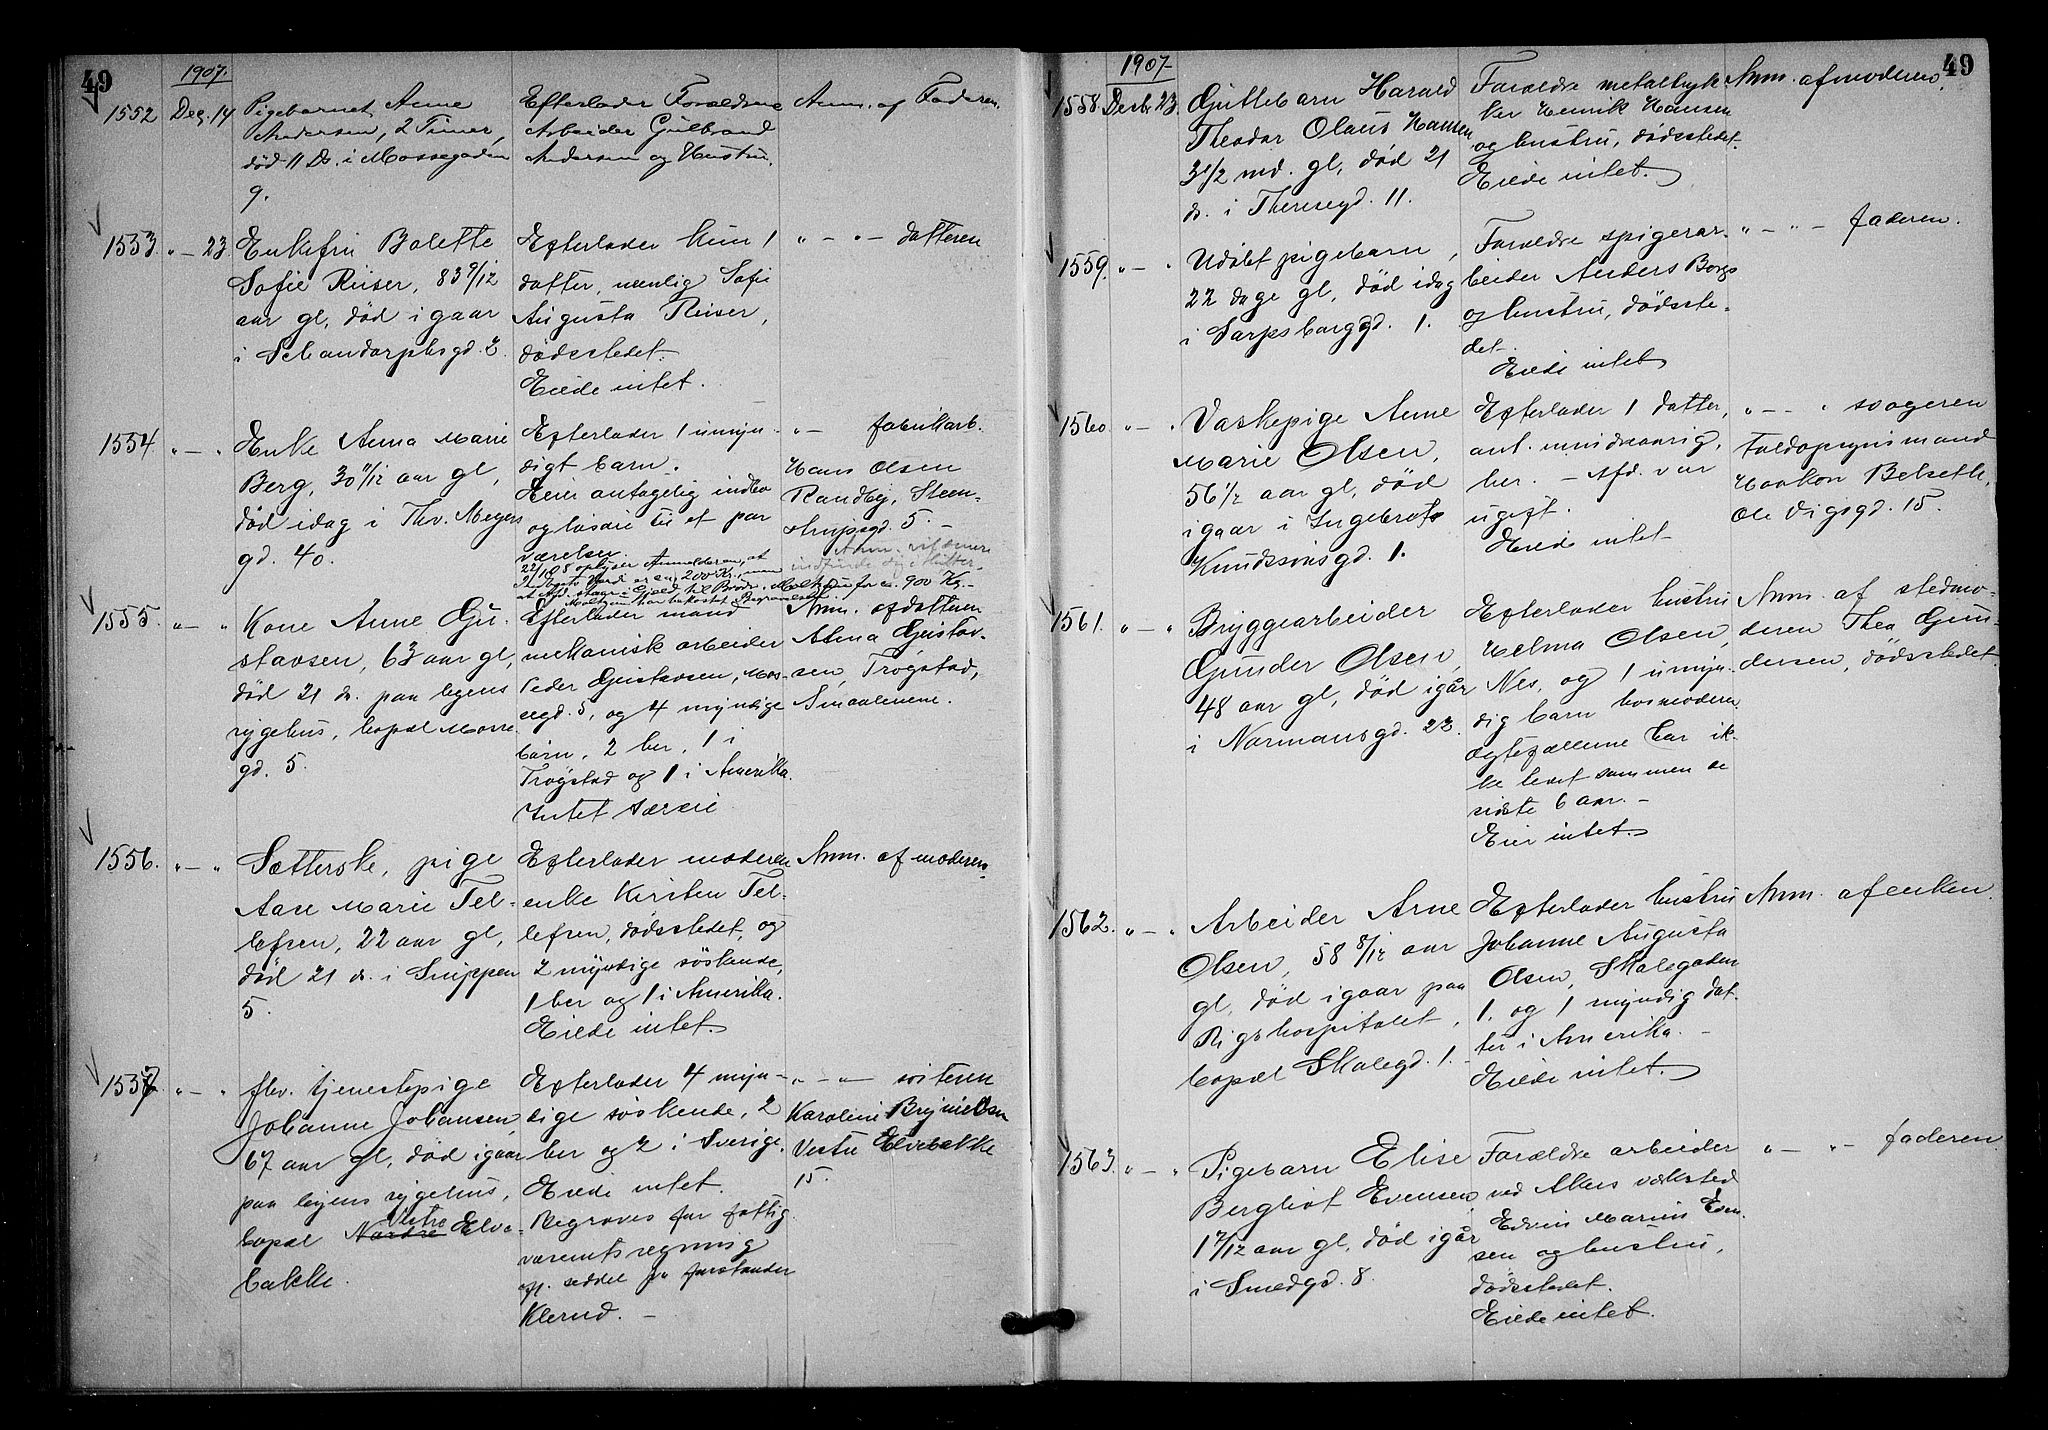 49
1907.
1552 Dec. 14 Pigebarnet Anne
Andersen, 2 Timer,
død 11 Ds. i Mossegaden
9.
Efterlader Forældrene
Arbeider Gulbrand
Andersen og Hustru.
Anm. af Faderen.
1553. " — 23. Enkefru Bolette
Sofie Riiser, 83 9/12
aar gl, død i gaar
i Schandorphsgd. 2.
Efterlader kun 1
datter, nemlig Sofie
Augusta Riiser,
dødsstedet.
Eiede intet.
" — " — datteren
1554. " — " Enke Anna Marie
Berg, 30 11/12 aar gl,
død idag i Thv. Meyers
gd. 40.
Efterlader 1 umyn-
digt barn.
Eier antagelig indbo
og løsøre til et par
værelser.
22/1 08 oplyser Anmelderen, at
Indboets Værdi er ca. 200 Kr., men
at Afd. staar i Gjæld til Brødr. for ca. 900 Kr. —
har bekostet Begravelsen.
" — fabrikarb.
Hans Olsen
Randbÿ, Steen-
strupsgd. 5. —
Anm. vil senere
indfinde sig
1555. " — " Kone Anne Gu-
stavsen, 63 aar gl,
død 21 ds. paa byens
sygehus, bopæl Mosse
gd. 5.
Efterlader mand
mekanisk arbeider
Peder Gustavsen, Mos-
segd. 5, og 4 myndige
børn, 2 her, 1 i
Trøgstad og 1 i Amerika.
Intet særeie
Anm. af datteren
Alma Gustav-
sen, Trøgstad,
Smaalenene.
1556. " — " Sætterske, pige
Aase Marie Tel-
lefsen, 22 aar gl,
død 21 ds. i Snippen
5.
Efterlader moderen
enke Kirsten Tel-
lefsen, dødsstedet, og
2 myndige søskende,
1 her og 1 i Amerika.
Eiede intet.
Anm. af moderen.
1557 " — " flv. tjenestepige
Johanne Johansen,
67 aar gl, død igaar
paa byens sygehus,
Vestre
bopæl Nordre Elve-
bakke.
Efterlader 4 myn-
dige søskende, 2
her og 2 i Sverige.
Eiede intet.
Begraves for fattig
væsenets regning
seddel fra forstander
Klerud. —
" — " — søsteren
Karoline Brynielsen
Vestre Elvebakke
15.
49
1907
1558. Decbr. 23. Guttebarn Harald
Theodor Olaus Hansen
3 1/2 md. gl, død 21
ds. i Theresegd. 11.
Forældre metaltryk-
ker Henrik Hansen
og hustru, dødsstedet.
Eiede intet.
Anm. af moderen.
1559. " — " Udøbt pigebarn,
22 dage gl, død idag
i Sarpsborggd. 1.
Forældre spigerar-
beider Anders Borgs
og hustru, dødsste-
det.
Eiede intet
" — " — faderen.
1560. " — " Vaskepige Anne
Marie Olsen,
56 1/2 aar gl, død
igaar i Ingebrets
Knudssønsgd. 1.
Efterlader 1 datter,
ant. mindreaarig,
her. — Afd. var
ugift.
Eiede intet
" — " svogeren
Toldopsynsmand
Haakon Belseth,
Ole Vigsgd. 15.
1561. " — " Bryggearbeider
Gunder Olsen,
48 aar gl, død igår
i Normansgd. 22.
Efterlader hustru
Helma Olsen,
Nes, og 1 umyn-
dig barn hos moderen
ægtefællerne har ik-
ke levet sammen de
sidste 6 aar. —
Eier intet.
Anm. af stedmo-
deren Thea Gun-
dersen, dødsstedet.
1562. " — " Arbeider Arne
Olsen, 58 8/12 aar
gl, død igaar paa
Rigshospitalet,
bopæl Skolegd. 1. —
Efterlader hustru
Johanne Augusta
Olsen, Skolegaden
1, og 1 myndig dat-
ter i Amerika. —
Eiede intet.
Anm. af enken.
1563. " — " Pigebarn Elise
Bergliot Evensen,
1 7/12 aar gl, død igår
i Smedgd. 8.
Forældre arbeider
ved Akers værksted
Edvin Marius Even-
sen og hustru,
dødsstedet.
Eiede intet.
" — " — faderen.